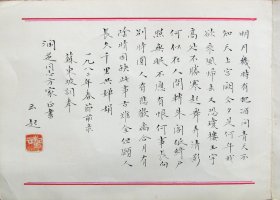 明月幾時有把酒問青天不
知天上宮闕今夕是何年我
欲乘風歸去又恐瓊樓玉宇
高處不勝寒起舞弄清影
何似在人間轉朱閣低綺户
照無眠不應有恨何事長向
别時圓人有悲歡離合月有
陰晴圓缺此事古難全但願人
長久千里共嬋娟
一九八二年春節前录
蘇東坡詞奉
同志方家正書
玉起